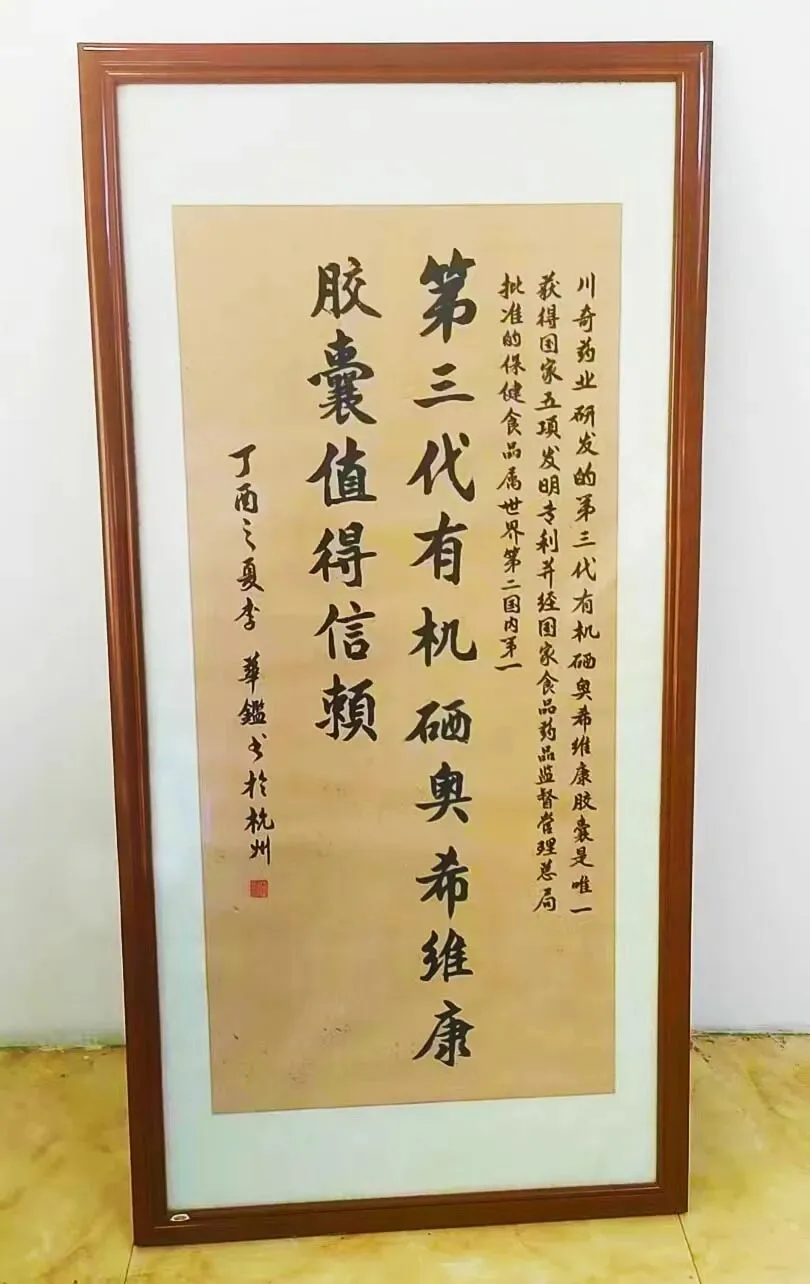 川奇药业研发的第三代有机硒奥希维康胶囊是唯一
获得国家五项发明专利并经国家食品药品监督管理总局
批准的保健食品属世界第二国内第一
第三代有机硒奥希维康
胶囊值得信赖
丁酉之夏李华鑑书於杭州